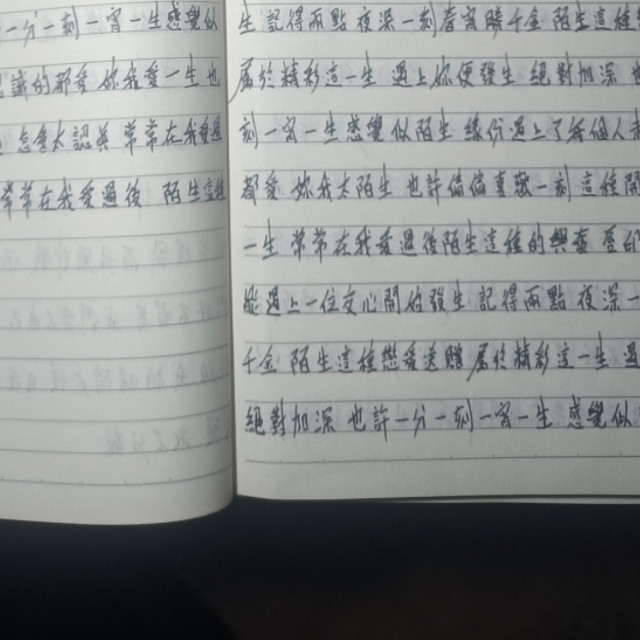 一分一刻 一客一生感覺似
的都愛 你我愛一生也
怎會太認真 常常在我愛過
常常在我愛過後 陌生這種
生 記得兩點夜深一刻春宵勝千金 陌生這種
屬於精彩這一生 遇上你便發生 絕對加深 也
刻一客一生感覺似陌生 緣份遇上了每個人
都愛 你我太陌生 也許偏偏喜歡一刻 這種
一生 常常在我愛過後陌生這種的
遇上一位交心開始發生 記得兩點 夜深一
千金 陌生這種戀愛遊戲 屬於精彩這一生 遇
絕對加深 也許一分一刻 一客一生 感覺似